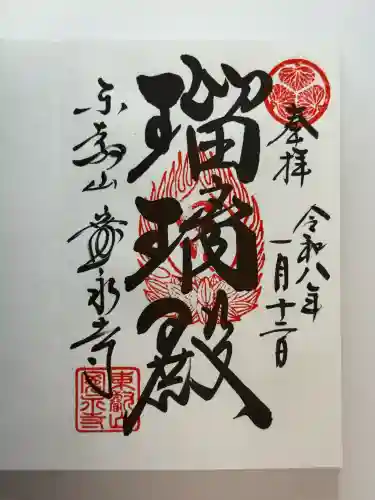 奉拝
令和八年
一月十二日
瑠璃殿
東叡山
寛永寺
東叡山
寛永寺